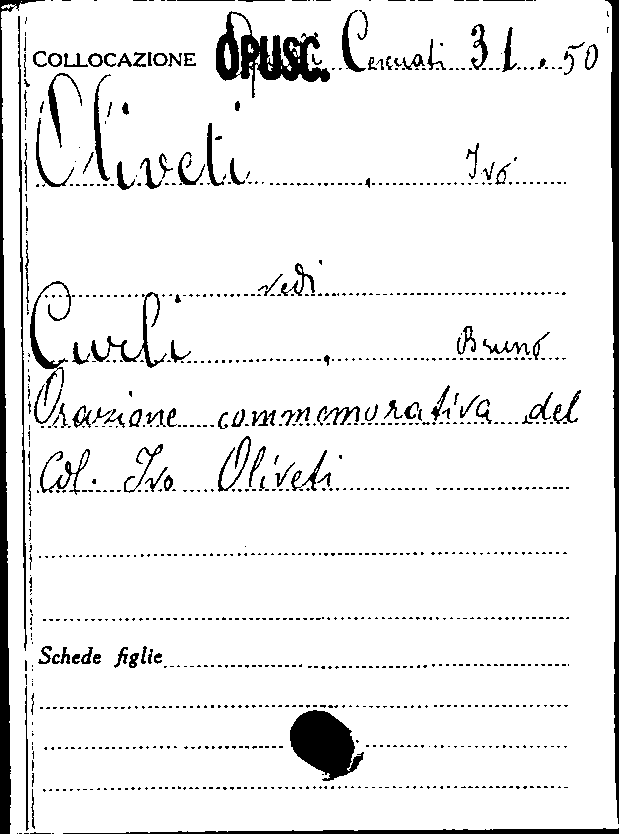 COLLOCAZIONE OPUSC. Cencati 31.50
Oliveti, Ivo
vedi
Curli, Bruno
Orazione commemorativa del
Col. Ivo Oliveti
Schede figlie